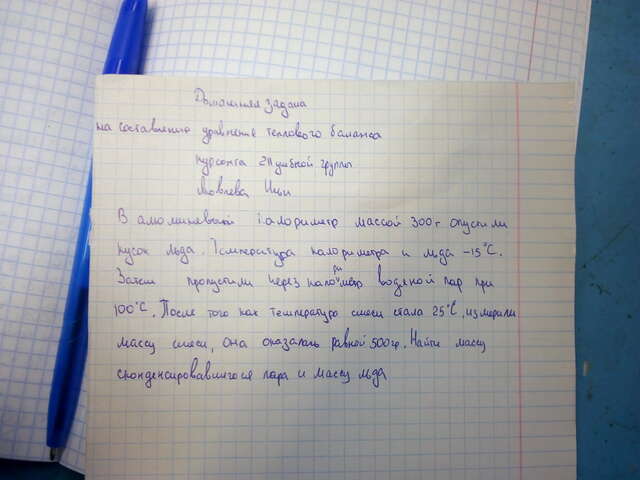 Домашняя задача
на составление уравнение теплового баланса
курсанта 211 учебной группы
Яковлева Ильи
В алюминевый калориметр массой 300г опустили
кусок льда. Температура калориметра и льда -15°C.
Затем пропустили через калориметр водяной пар при
100°C. После того как температура смеси стала 25°C, измерили
массу смеси, она оказалась равной 500гр. Найти массу
сконденсировавшегося пара и массу льда